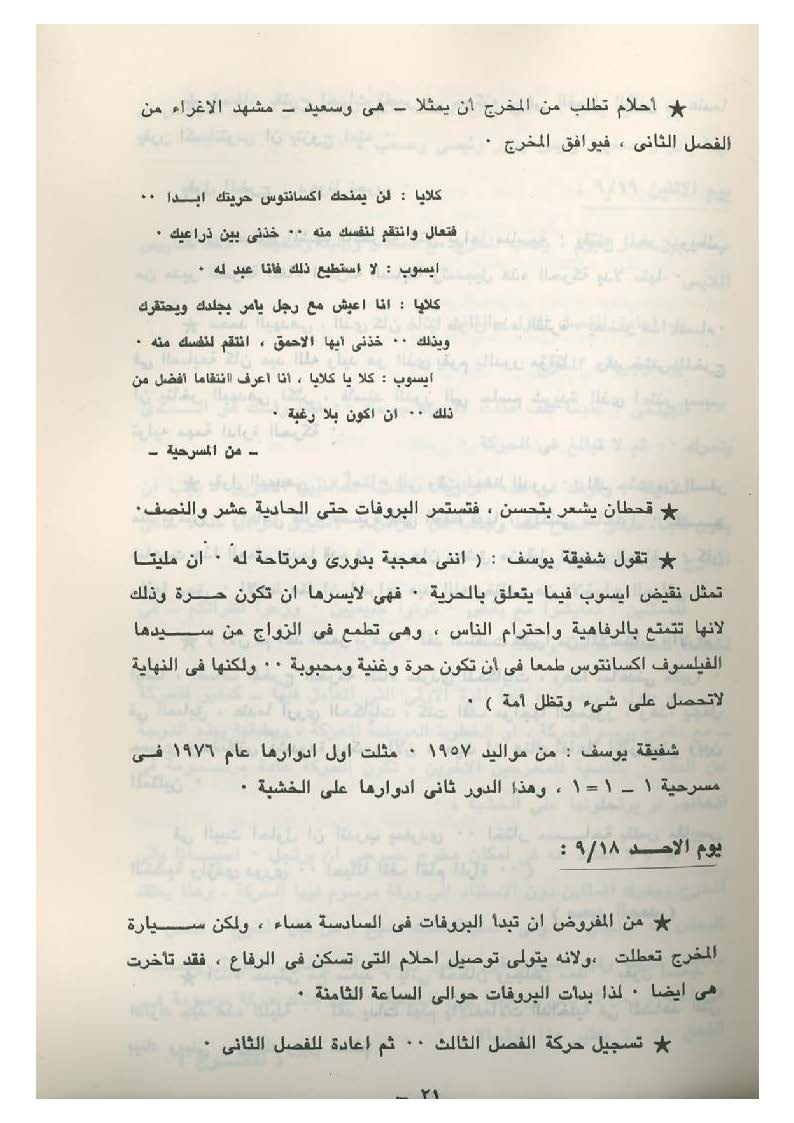 ★ أحلام تطلب من المخرج أن يمثلا ــ هى وسعيد ــ مشهد الاغراء من
الفصل الثانى ، فيوافق المخرج ٠
كلايا : لن يمنحك اكسانتوس حريتك ابـــدا ٠٠
فتعال وانتقم لنفسك منه ٠٠ خذنى بين ذراعيك ٠
ايسوب : لا استطيع ذلك فانا عبد له ٠
كلايا : انا اعيش مع رجل يأمر بجلدك ويحتقرك
ويذلك ٠٠ خذنى أيها الاحمق ، انتقم لنفسك منه ٠
ايسوب : كلا يا كلايا ، انا اعرف انتقاما أفضل من
ذلك ٠٠ ان اكون بلا رغبة ٠
ــ من المسرحية ــ
★ قحطان يشعر بتحسن ، فتستمر البروفات حتى الحادية عشر والنصف٠
★ تقول شفيقة يوسف : ( اننى معجبة بدورى ومرتاحة له ٠ أن مليتـا
تمثل نقيض ايسوب فيما يتعلق بالحرية ٠ فهى لايسرها ان تكون حـرة وذلك
لانها تتمتع بالرفاهية واحترام الناس ، وهى تطمع فى الزواج من ســـيدها
الفيلسوف اكسانتوس طمعا فى أن تكون حرة وغنية ومحبوبة ٠٠ ولكنها فى النهاية
لاتحصل على شىء وتظل أمة ) ٠
شفيقة يوسف : من مواليد ١٩٥٧ ٠ مثلت اول ادوارها عام ١٩٧٦ فـى
مسرحية ١ ــ ١ = ١ ، وهذا الدور ثانى ادوارها على الخشبة ٠
يوم الاحـــد ٩/١٨ :
★ من المفروض ان تبدأ البروفات فى السادسة مساء ، ولكن ســـيارة
المخرج تعطلت ،ولانه يتولى توصيل احلام التى تسكن فى الرفاع ، فقد تأخرت
هى ايضا ٠ لذا بدأت البروفات حوالى الساعة الثامنة ٠
★ تسجيل حركة الفصل الثالث ٠٠ ثم اعادة للفصل الثانى ٠
٢١ ــ